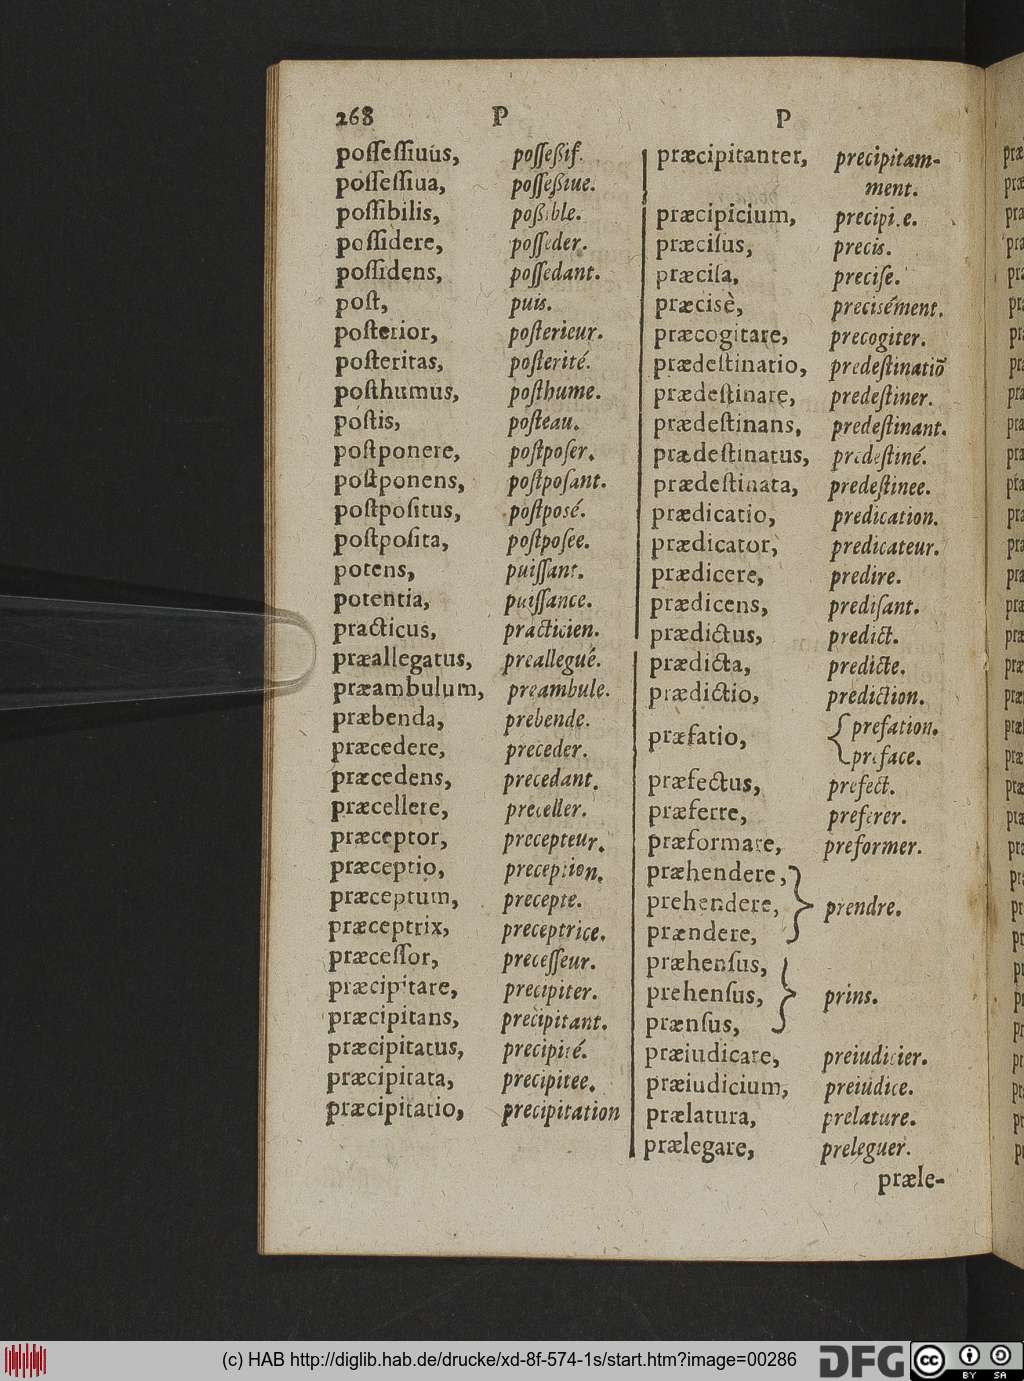 268 P P
poſſeſſiuus, poſſeßif.
poſſeſſiua, poſſeßiue.
poſſibilis, poßible.
poſſidere, poſſeder.
poſſidens, poſſedant.
poſt, puis.
poſterior, poſterieur.
poſteritas, poſterité.
poſthumus, poſthume.
poſtis, poſteau.
poſtponere, poſtpoſer.
poſtponens, poſtpoſant.
poſtpoſitus, poſtposé.
poſtpoſita, poſtpoſee.
potens, puiſſant.
potentia, puiſſance.
practicus, practicien.
præallegatus, preallegué.
præambulum, preambule.
præbenda, prebende.
præcedere, preceder.
præcedens, precedant.
præcellere, preceller.
præceptor, precepteur.
præceptio, preception.
præceptum, precepte.
præceptrix, preceptrice.
præceſſor, preceſſeur.
præcipitare, precipiter.
præcipitans, precipitant.
præcipitatus, precipité.
præcipitata, precipitee.
præcipitatio, precipitation
præcipitanter, precipitam-
ment.
præcipicium, precipice.
præciſus, precis.
præciſa, preciſe.
præcisè, precisément.
præcogitare, precogiter.
prædeſtinatio, predeſtinatiõ
prædeſtinare, predeſtiner.
prædeſtinans, predeſtinant.
prædeſtinatus, predeſtiné.
prædeſtinata, predeſtinee.
prædicatio, predication.
prædicator, predicateur.
prædicere, predire.
prædicens, prediſant.
prædictus, predict.
prædicta, predicte.
prædictio, prediction.
præfatio, { prefation.
preface.
præfectus, prefect.
præferre, preferer.
præformare, preformer.
præhendere,
prehendere, } prendre.
prændere,
præhenſus,
prehenſus, } prins.
prænſus,
præiudicare, preiudicier.
præiudicium, preiudice.
prælatura, prelature.
prælegare, preleguer.
præle-
(c) HAB http://diglib.hab.de/drucke/xd-8f-574-1s/start.htm?image=00286
DFG
cc BY SA